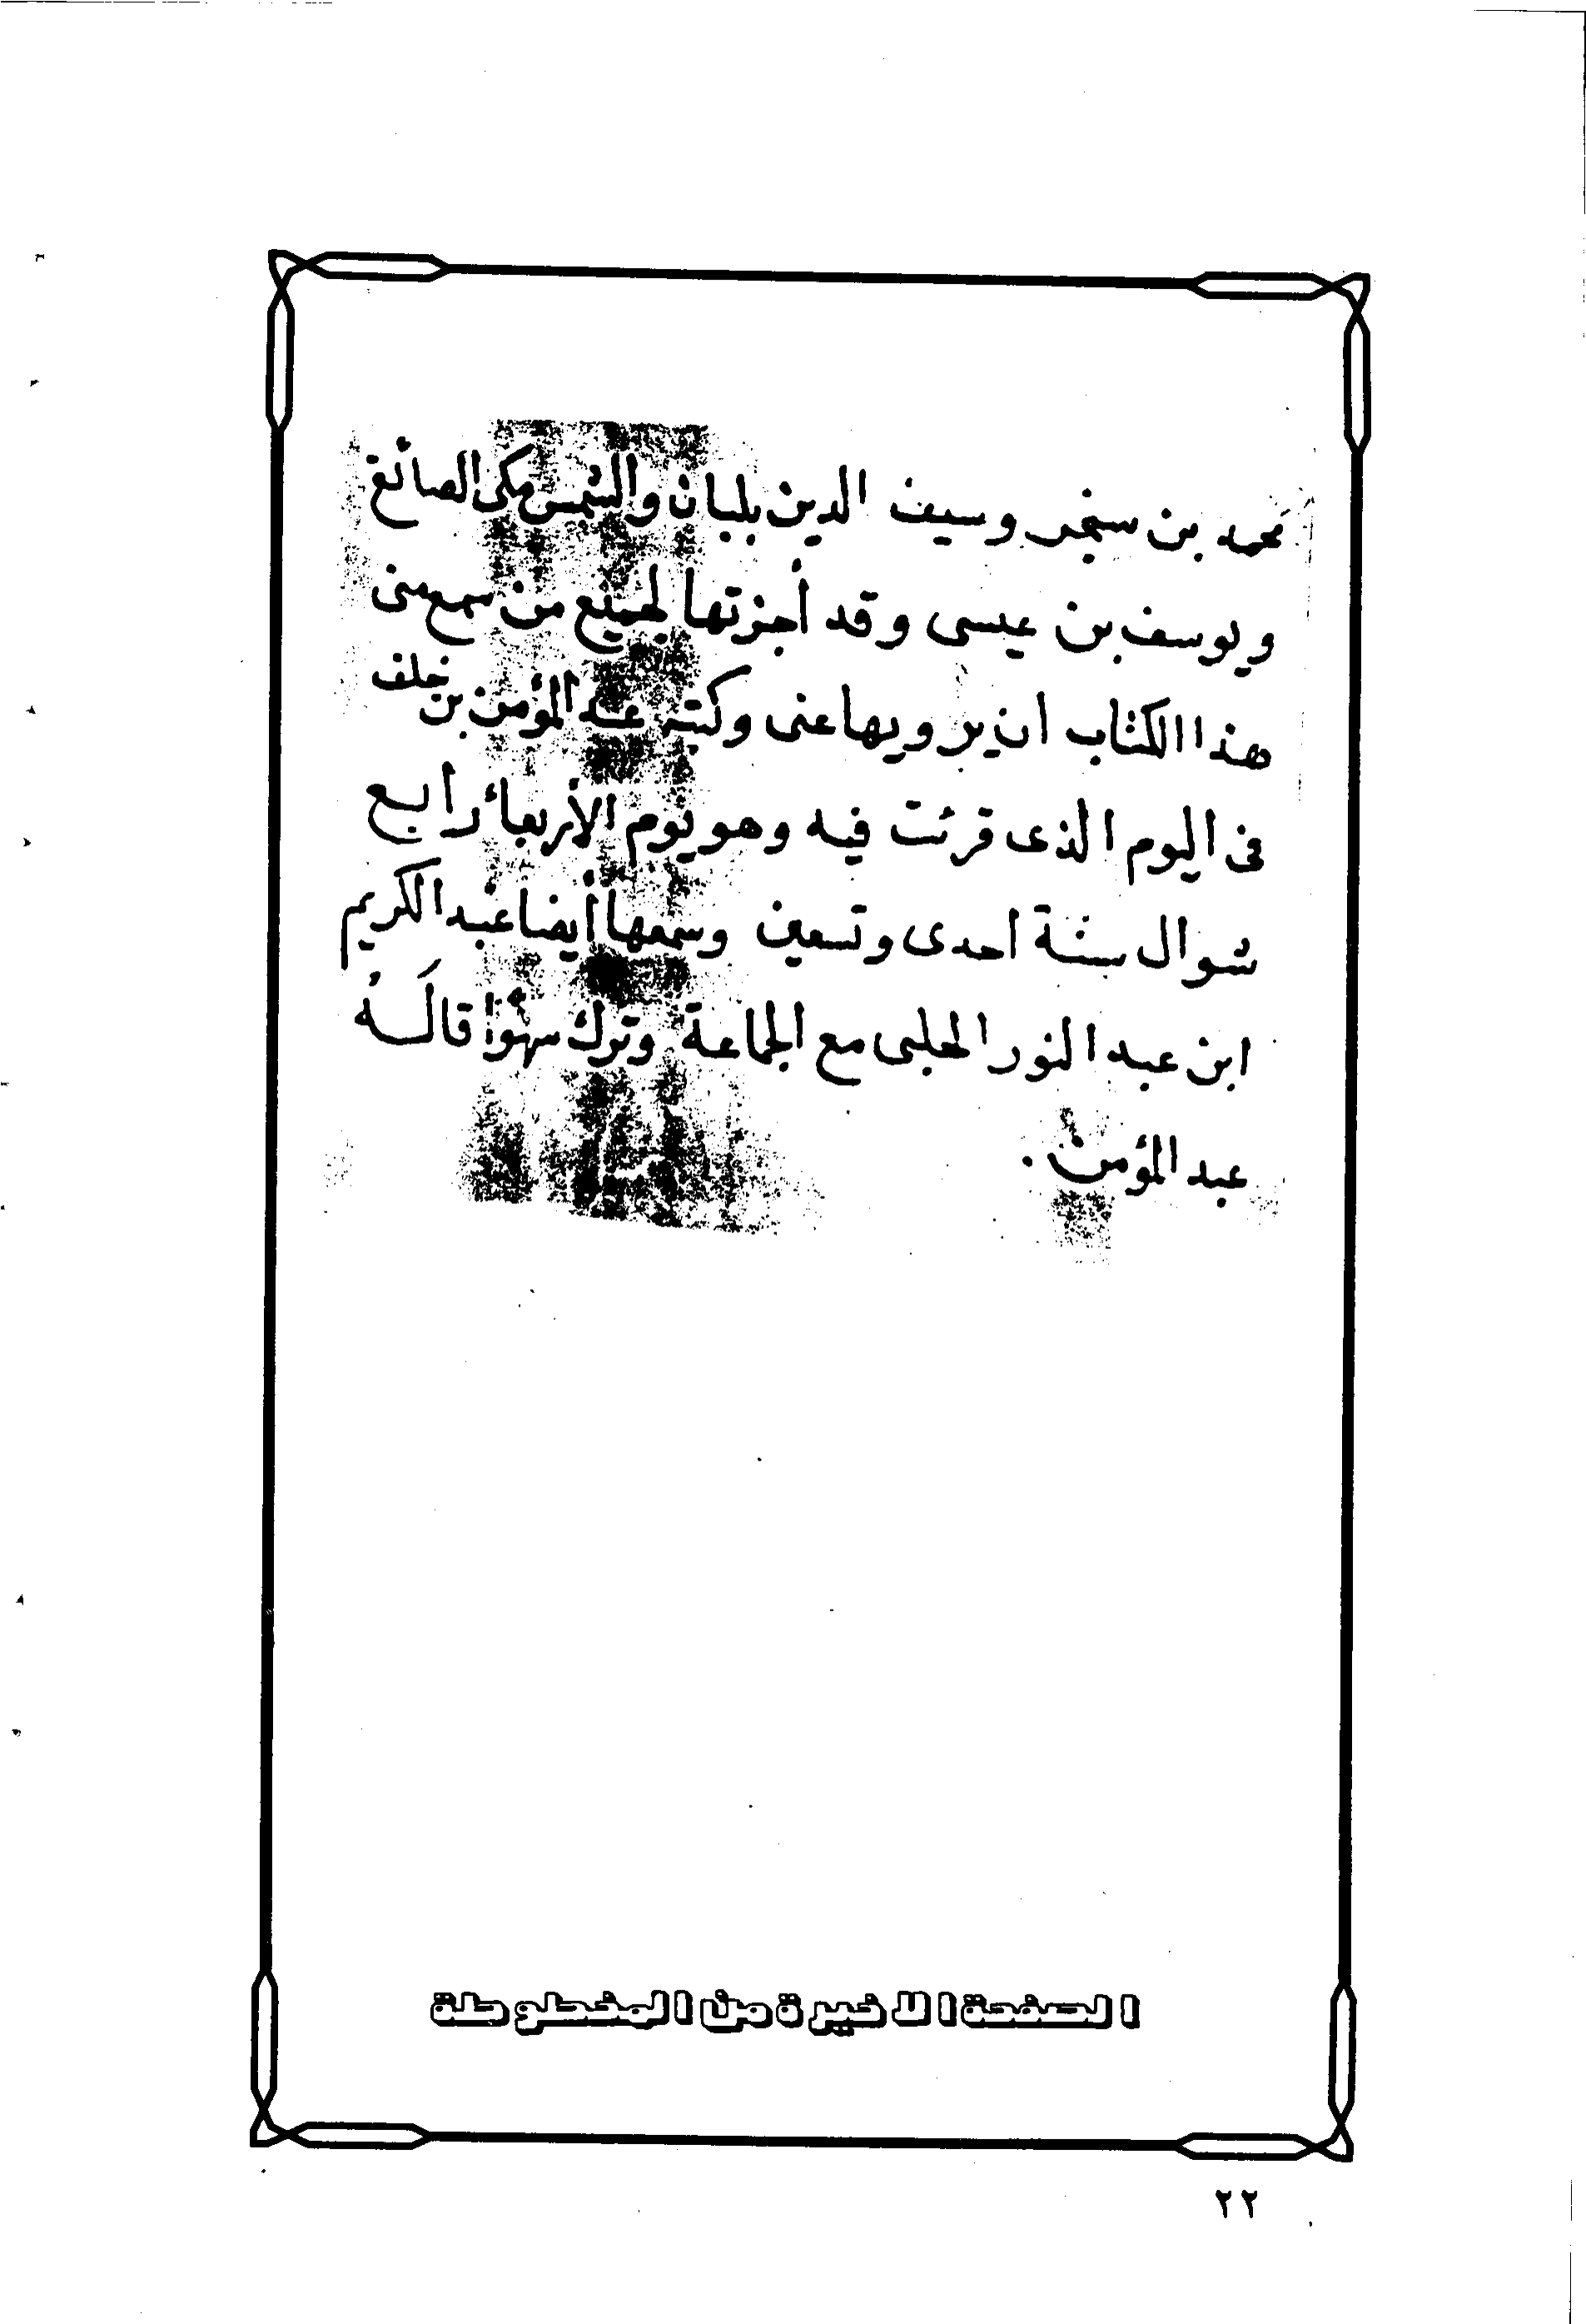 محمد بن سنجر وسيف الدين بلبان والشمس مكى الصائغ
ويوسف بن عيسى وقد أجزتها لجميع من سمع منى
هذا الكتاب ان يرويها عنى وكتبه عبد المؤمن بن خلف
فى اليوم الذى قرئت فيه وهو يوم الأربعاء رابع
شوال سنة احدى وتسعين وسمعها أيضا عبد الكريم
ابن عبد النور الحلبى مع الجماعة وترك سهوا قاله
عبد المؤمن .
الصفحة الاخيرة من المخطوطة
٢٢